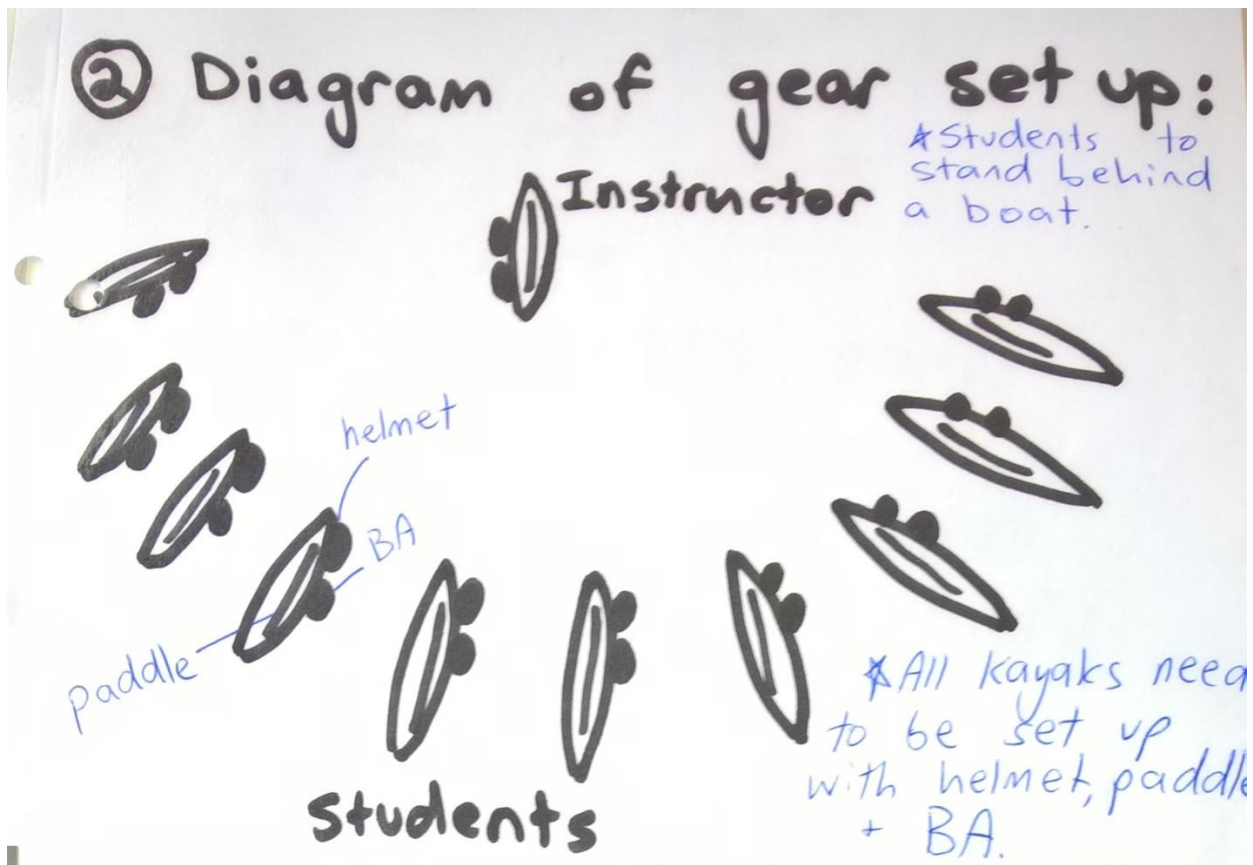 ② Diagram of gear set up:
*Students to
stand behind
a boat.
Instructor
helmet
BA
paddle
*All kayaks need
to be set up
with helmet, paddle
+ BA.
Students